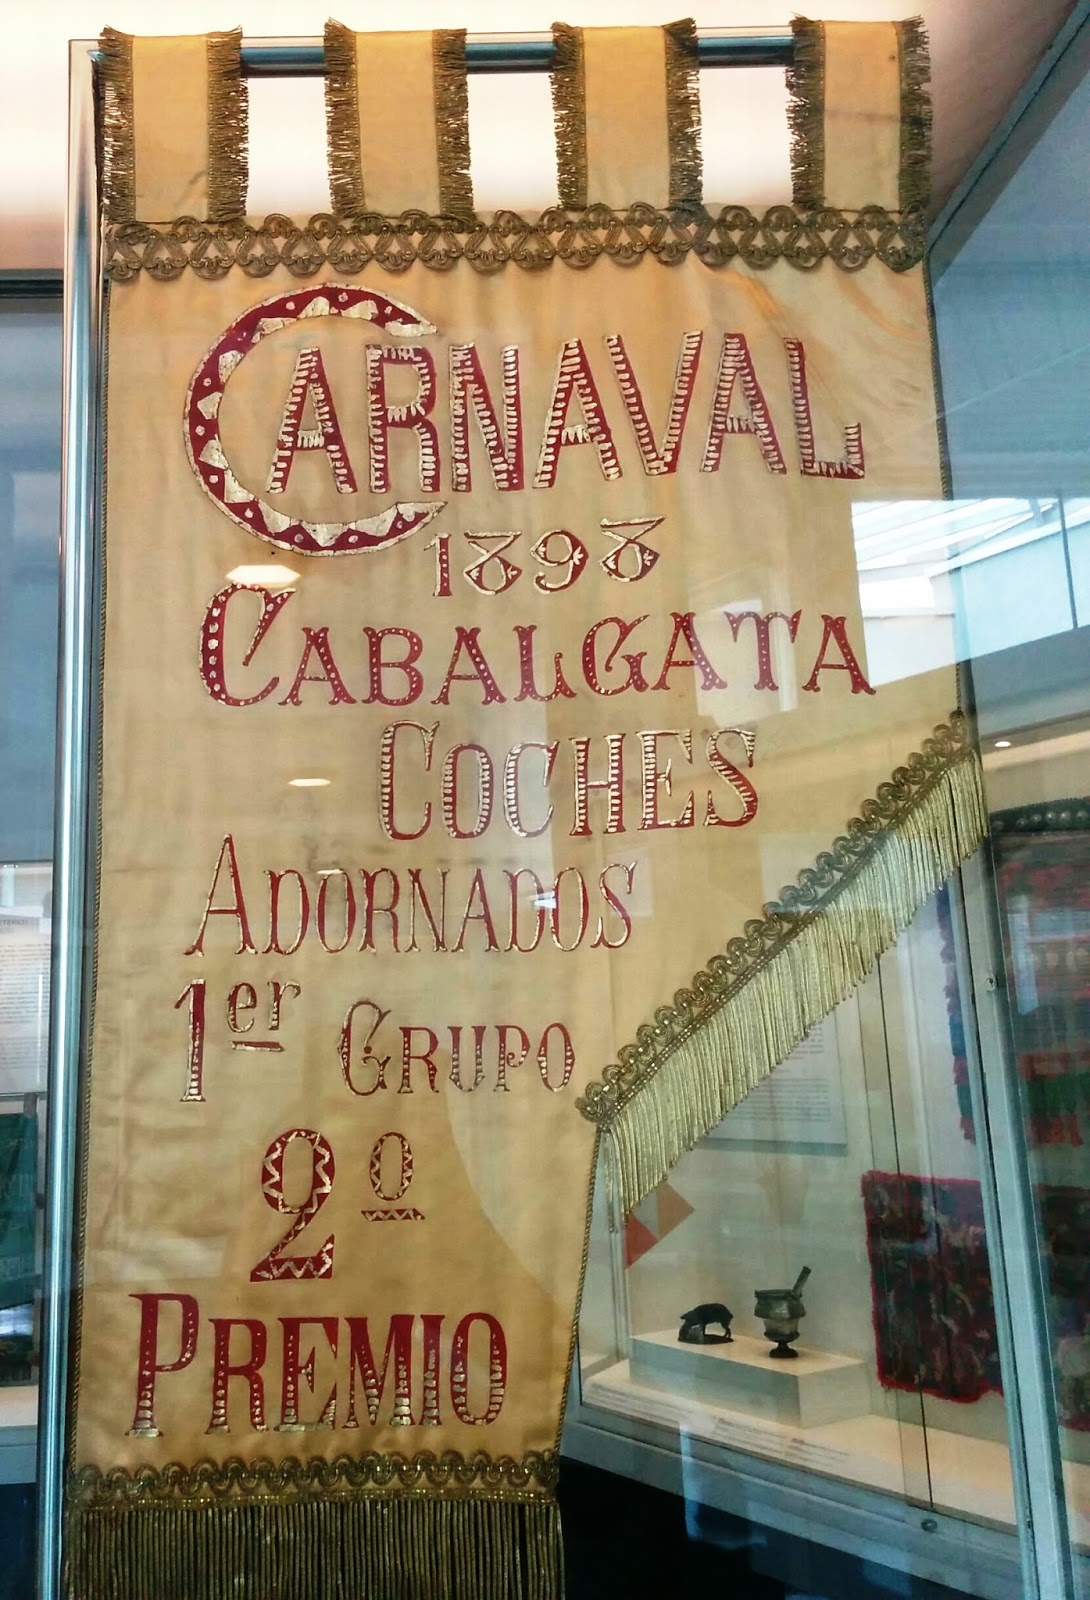 CARNAVAL
1898
CABALGATA
COCHES
ADORNADOS
1er GRUPO
2º
PREMIO